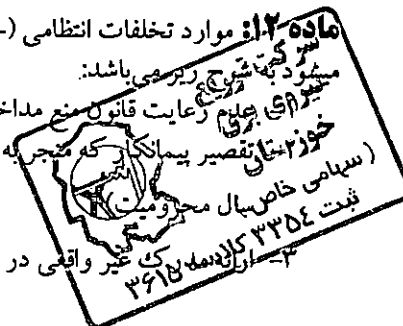 ماده ۱۲: موارد تخلفات انتظامی (-
میشود به شرح زیر می‌باشد:
عدم رعایت قانون منع مداخ
۲- تقصیر پیمانکار که منجر به
سال محرومیت)
۳- ارائه مدرک غیر واقعی در
شرکت توزیع
نیروی برق
خوزستان
(سهامی خاص)
ثبت ۳۳۵۴ کلاسه ۳۶۱۵